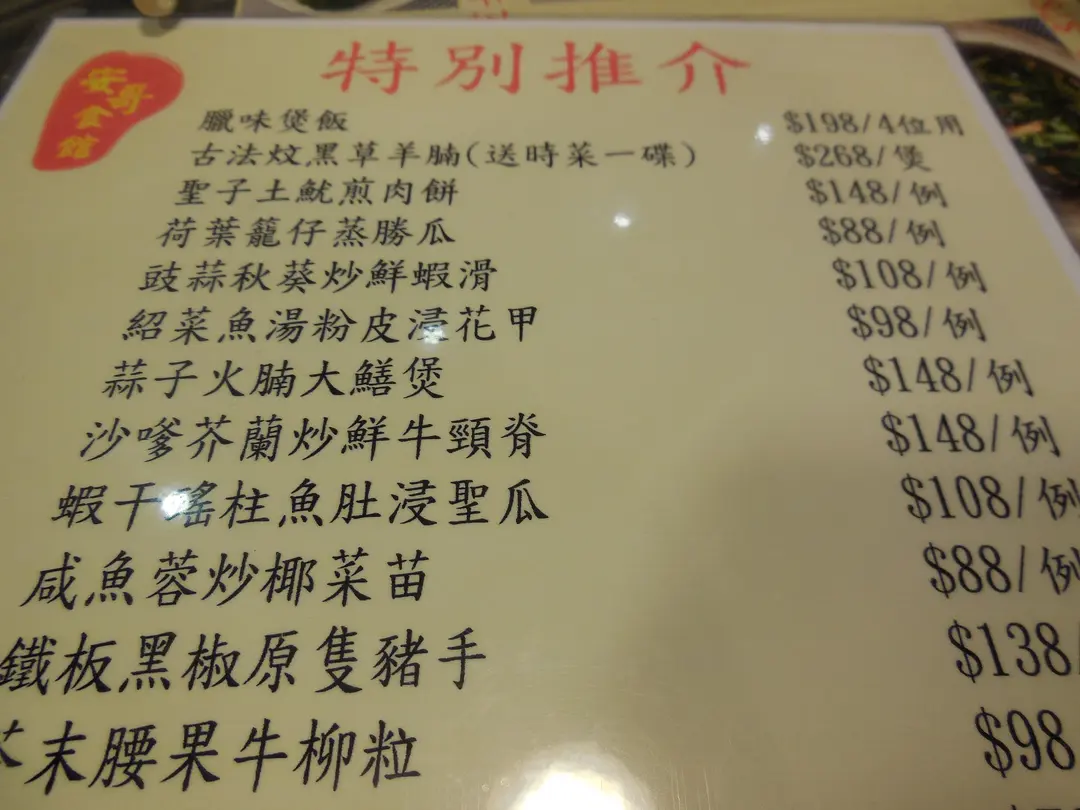 特別推介
安哥
食館
臘味煲飯 $198/4位用
古法炆黑草羊腩(送時菜一碟) $268/煲
聖子土魷煎肉餅 $148/例
荷葉籠仔蒸勝瓜 $88/例
豉蒜秋葵炒鮮蝦滑 $108/例
紹菜魚湯粉皮浸花甲 $98/例
蒜子火腩大鱔煲 $148/例
沙嗲芥蘭炒鮮牛頸脊 $148/例
蝦干瑤柱魚肚浸聖瓜 $108/例
咸魚蓉炒椰菜苗 $88/例
鐵板黑椒原隻豬手 $138/
末腰果牛柳粒 $98